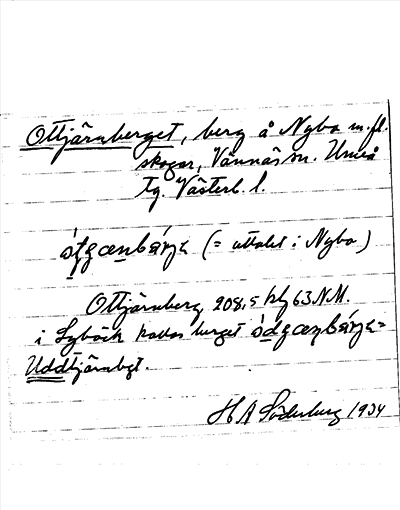 Ottjärnberget, berg å Nyba m.fl.
skogar, Vännäs sn. Umeå
tg. Västerb. l.
(= uttalet i Nyba)
Ottjärnberg, 208,5 kbl 63 N.M.
i Sybäck kallas berget
Uddtjärnbgt.
H A Söderberg 1934